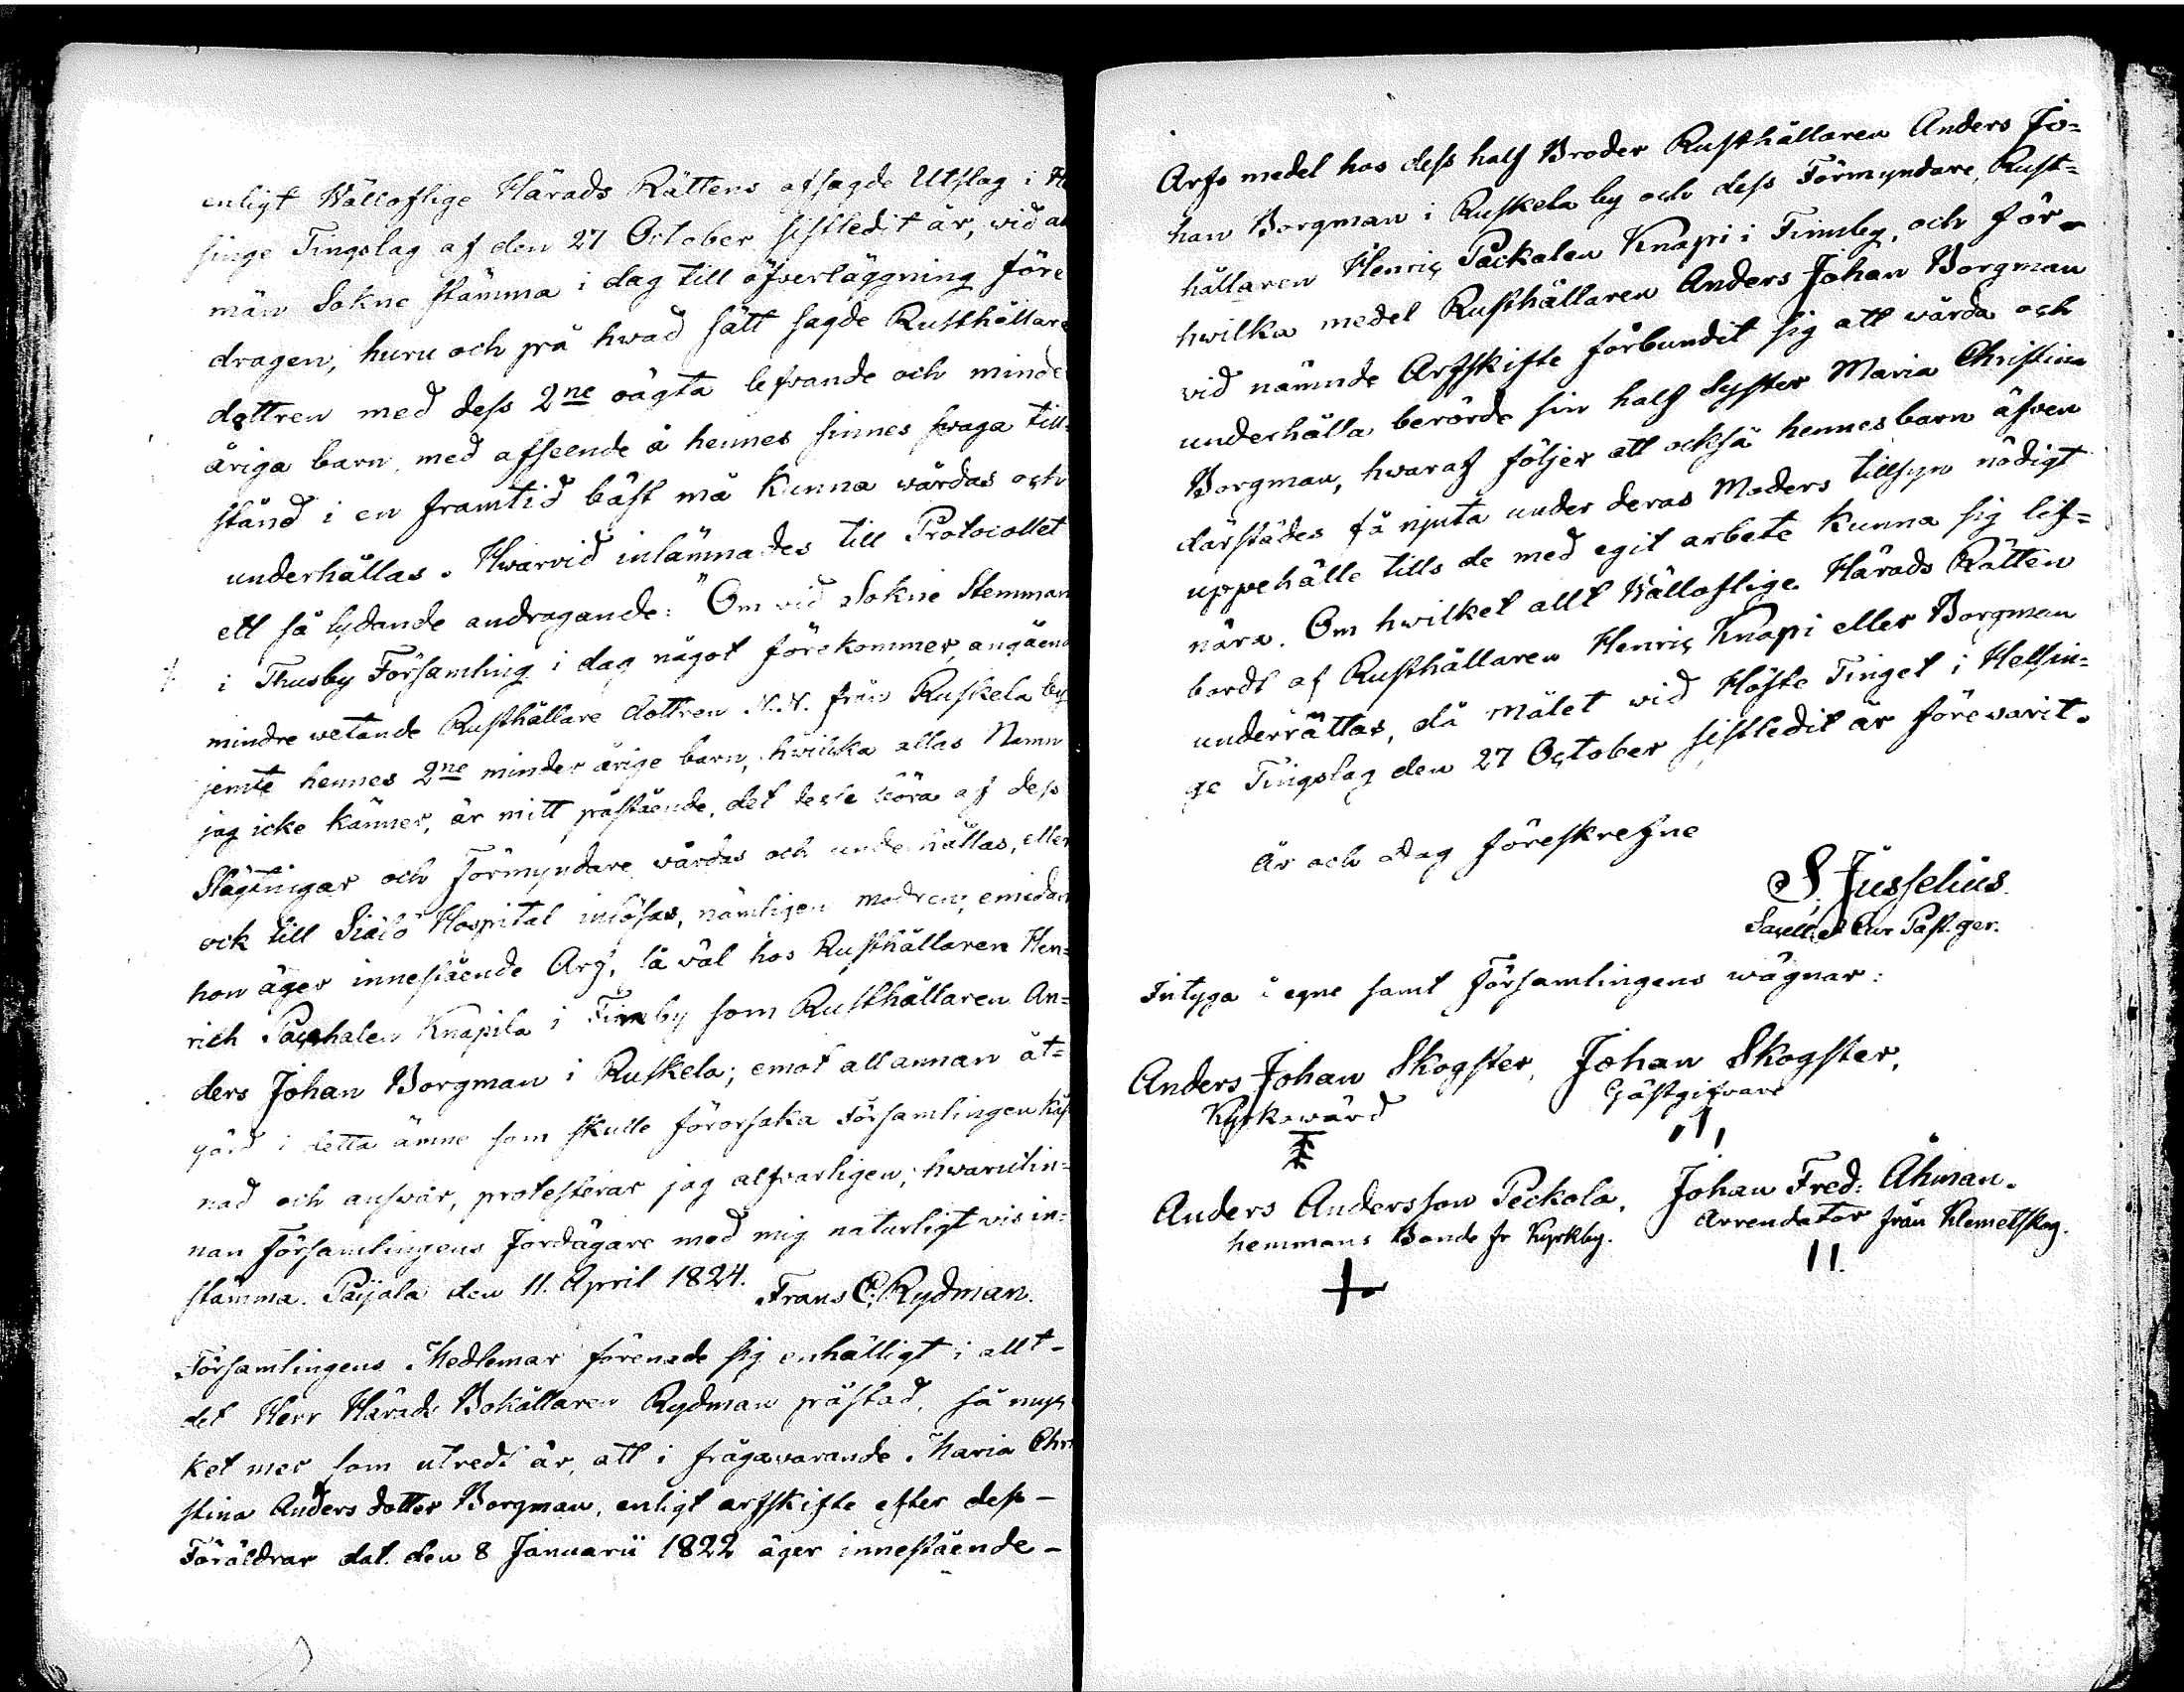 enligt Wälloflige Härads Rättens afsagde Utslag i He
singe Tingslag af den 27 October sistledit år, vid al
män Sokne stämma i dag till öfverläggning före
dragen, huru och på hvad sätt sagde Rusthållare
dottren med dess 2ne oägta lefvande och minde
åriga barn, med afseende å hennes sinnes svaga till-
stånd i en framtid bäst må kunna vårdas och
underhållas. Hvarvid inlämnades till Protocollet
ett så lydande andragande: "Om vid Sokne Stemman
i Thusby Församling i dag något förekommer, angåend
mindre vetande Rusthållare dottren N.N. från Ruskela by
jemte hennes 2ne minder årige barn, hvilka allas Namn
jag icke känner, är mitt påstående, det desse böra af dess
Slägtingar och Förmyndare vårdas och underhållas, eller
ock till Siälö Hospital inlösas, nämligen modren, emedan
hon äger innestående Arf, så väl hos Rusthållaren Hen=
rich Packalen Knapila i Finnby som Rusthållaren An=
ders Johan Borgman i Ruskela; emot all annan åt=
gärd i detta ämne som skulle förorsaka Församlingen kåst
nad och ansvar, protesterar jag alfvarligen, hvarutin=
nan Församlingens Jordägare med mig naturligtvis in=
stämma. Paijala den 11. April 1824.
Frans C. Rydman.
Församlingens Medlemar förenade sig enhälligt i allt -
det Herr Härads Bokållaren Rydman påstad, så myc
ket mer som utredt är, att i frågavarande Maria Chri
stina Anders dotter Borgman, enligt arfskifte efter dess -
Föräldrar dat. den 8 Januarii 1822 äger innestående -
Arfs medel hos dess half Broder Rusthållaren Anders Jo=
han Borgman i Ruskela by och dess Förmyndare, Rust=
hållaren Henric Packalen Knapi i Finnby, och för -
hvilka medel Rusthållaren Anders Johan Borgman
vid nämnde Arfskifte förbundit sig att vårda och
underhålla berörde sin half Syster Maria Christina
Borgman, hvaraf följer att också hennes barn äfven
därstädes få njuta under deras Moders tillsyn nödigt
uppehälle tills de med egit arbete kunna sig lif=
nära. Om hvilket allt Wälloflige Härads Rätten
bordt af Rusthållaren Henric Knapi eller Borgman
underrättas, då målet vid Höste Tinget i Helsin=
ge Tingslag den 27 October sistledit år förevarit.
År och dag föreskrefne
S. Jusselius.
Sacell. et Cur Past. ger.
Intyga å egne samt Församlingens vägnar:
Anders Johan Skogster, Johan Skogster,
Kyrkovärd Gästgifvare
Anders Andersson Peckola, Johan Fred: Åhman.
hemmans Bonde fr Kyrkby. Arrendator från Klemetskog.